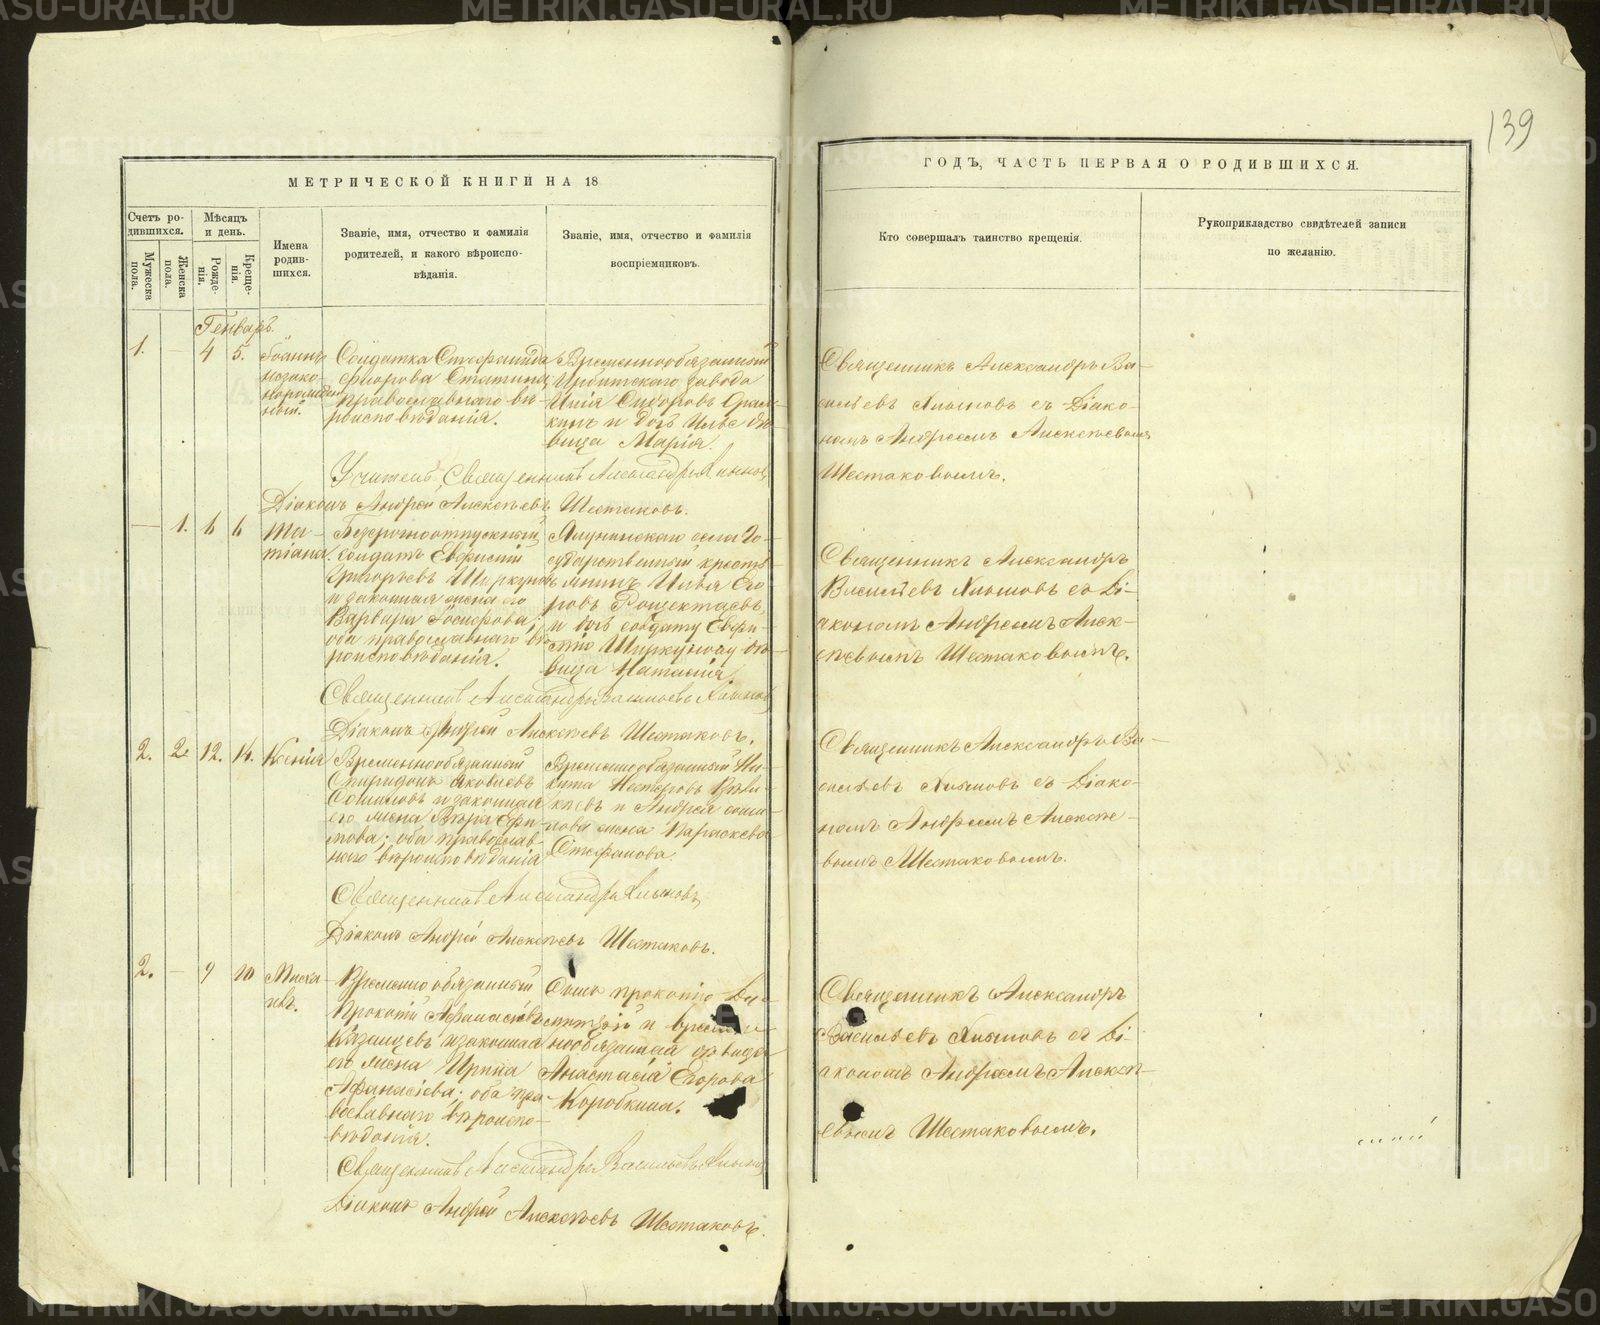 139
МЕТРИЧЕСКОЙ КНИГИ НА 18
ГОДЪ, ЧАСТЬ ПЕРВАЯ О РОДИВШИХСЯ.
Счетъ ро-
дившихся.
Мужеска
пола.
Женска
пола.
Мѣсяцъ
и день.
Рожде-
нія.
Креще-
нія.
Имена
родив-
шихся.
Званіе, имя, отчество и фамилія
родителей, и какого вѣроиспо-
вѣданія.
Званіе, имя, отчество и фамилія
воспріемниковъ.
Кто совершалъ таинство крещенія.
Рукоприкладство свидѣтелей записи
по желанію.
Генварь.
1.
—
4
5.
Іоаннъ
незако-
норожден
ный.
Солдатка Стефанида
православнаго вѣ-
роисповѣданія.
Временнообязанный
Ирбитскаго завода
Илія Сидоровъ
кинъ и дочь Ильи дѣ-
вица Марія.
Священникъ Александръ Ва-
сильевъ Хлыновъ съ Діако-
номъ Андреемъ Алексѣевымъ
Шестаковымъ.
Учитель, Священникъ Александръ Хлыновъ
Діаконъ Андрей Алексѣевъ Шестаковъ.
—
1.
6
6
Та-
тіана.
Безсрочноотпускный
солдатъ Евфисій
Григорьевъ Ширкуновъ
и законная жена его
Варвара Іосифова;
оба православнаго вѣ-
роисповѣданія.
села Го-
сударственный кресть-
янинъ Илья Его-
ровъ Рощектаевъ,
и дочь солдата
Ширкунову дѣ-
вица Наталія.
Священникъ Александръ
Васильевъ Хлыновъ съ Ді-
акономъ Андреемъ Алек-
сѣевымъ Шестаковымъ.
Священникъ Александръ Васильевъ Хлыновъ
Діаконъ Андрей Алексѣевъ Шестаковъ.
2.
2.
12.
14.
Ксенія
Временнообязанный
Спиридонъ Яковлевъ
и законная
его жена Вѣра
оба православ-
наго вѣроисповѣданія
Временнообязанный Ни-
кита Нестеровъ
и Андрея
жена Параскева
Стефанова.
Священникъ Александръ Ва-
сильевъ Хлыновъ съ Діако-
номъ Андреемъ Алексѣе-
вымъ Шестаковымъ.
Священникъ Александръ Хлыновъ
Діаконъ Андрей Алексѣевъ Шестаковъ.
2.
—
9
10
Миха-
илъ.
Временнообязанный
Прокопій Афанасьевъ
Казанцевъ и законная
его жена Ирина
Афанасіева; оба пра-
вославнаго вѣроиспо-
вѣданія.
Прокопію
и време-
ннообязанная дѣвица
Анастасія Егорова
Коробкина.
Священникъ Александръ
Васильевъ Хлыновъ съ Ді-
акономъ Андреемъ Алексѣ-
евымъ Шестаковымъ.
Священникъ Александръ Васильевъ Хлыновъ
Діаконъ Андрей Алексѣевъ Шестаковъ.
METRIKI.GASO-URAL.RU